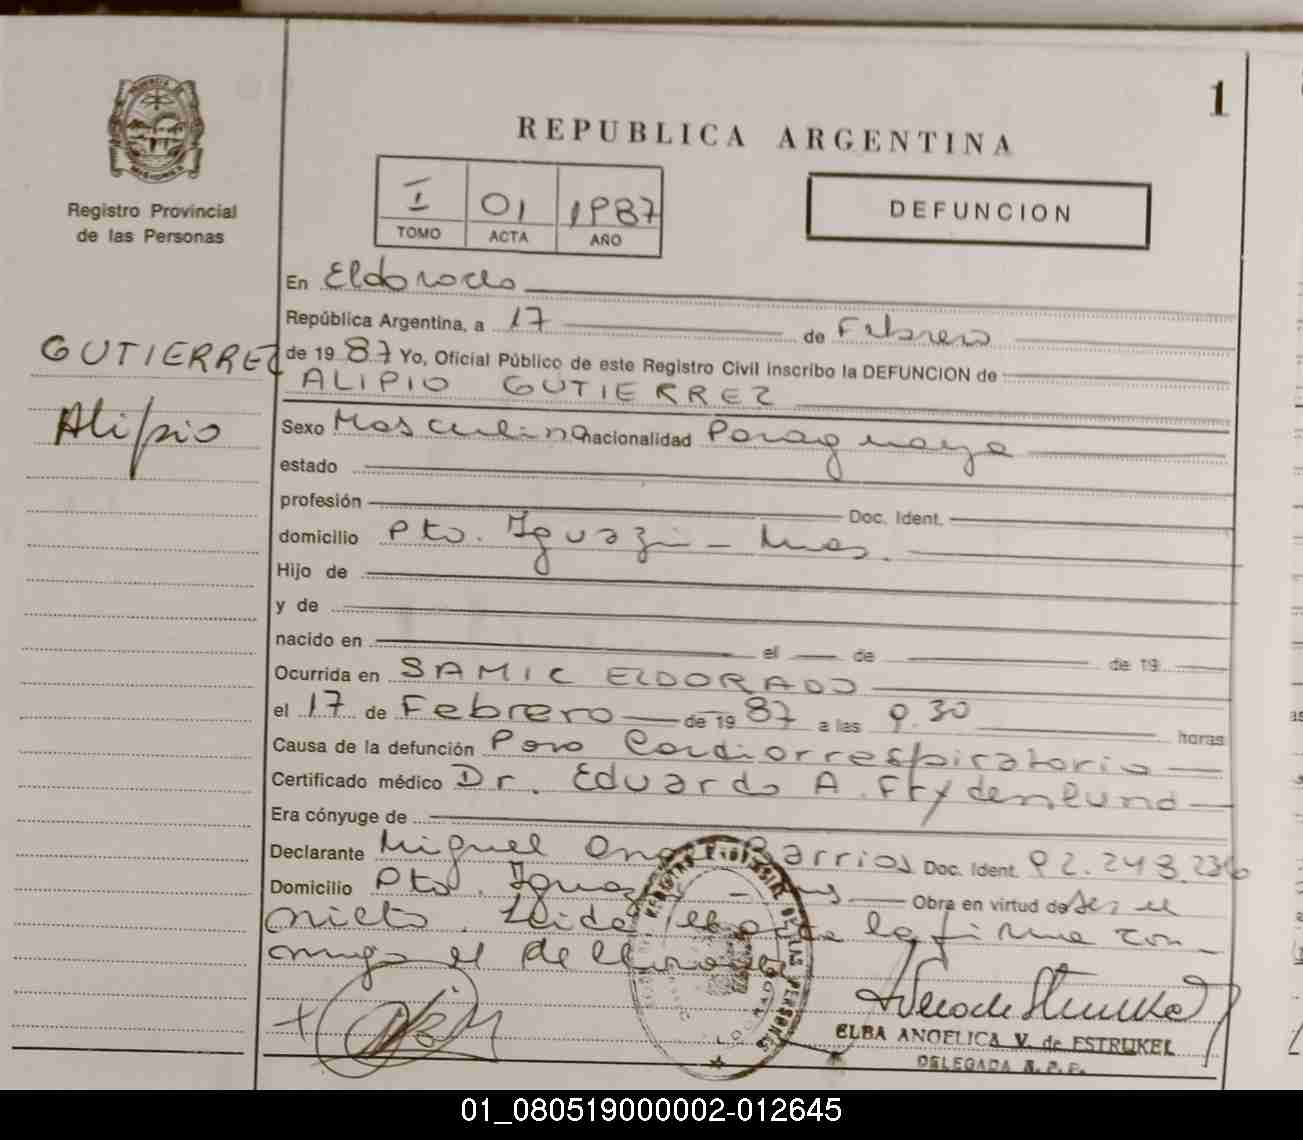 1
REPUBLICA ARGENTINA
I 01 1987
TOMO ACTA AÑO
DEFUNCION
Registro Provincial
de las Personas
GUTIERREZ
Alipio
En Eldorado
República Argentina, a 17 de Febrero
de 1987 Yo, Oficial Público de este Registro Civil inscribo la DEFUNCION de
ALIPIO GUTIERREZ
Sexo Masculino nacionalidad Paraguaya
estado
profesión Doc. Ident.
domicilio Pto. Iguazú - Mnes.
Hijo de
y de
nacido en el de de 19
Ocurrida en SAMIC ELDORADO
el 17 de Febrero de 1987 a las 9.30 horas
Causa de la defunción Paro Cardiorrespiratorio
Certificado médico Dr. Eduardo A. Frydenlund
Era cónyuge de
Declarante Miguel Barrios Doc. Ident. 92.243.236
Domicilio Pto. Iguazú - Obra en virtud de Ser el
nieto. Leida el acta la firma con-
migo el
REGISTRO PROVINCIAL DE LAS PERSONAS
ELBA ANGELICA V. de ESTRUKEL
DELEGADA R.P.P.
01_080519000002-012645